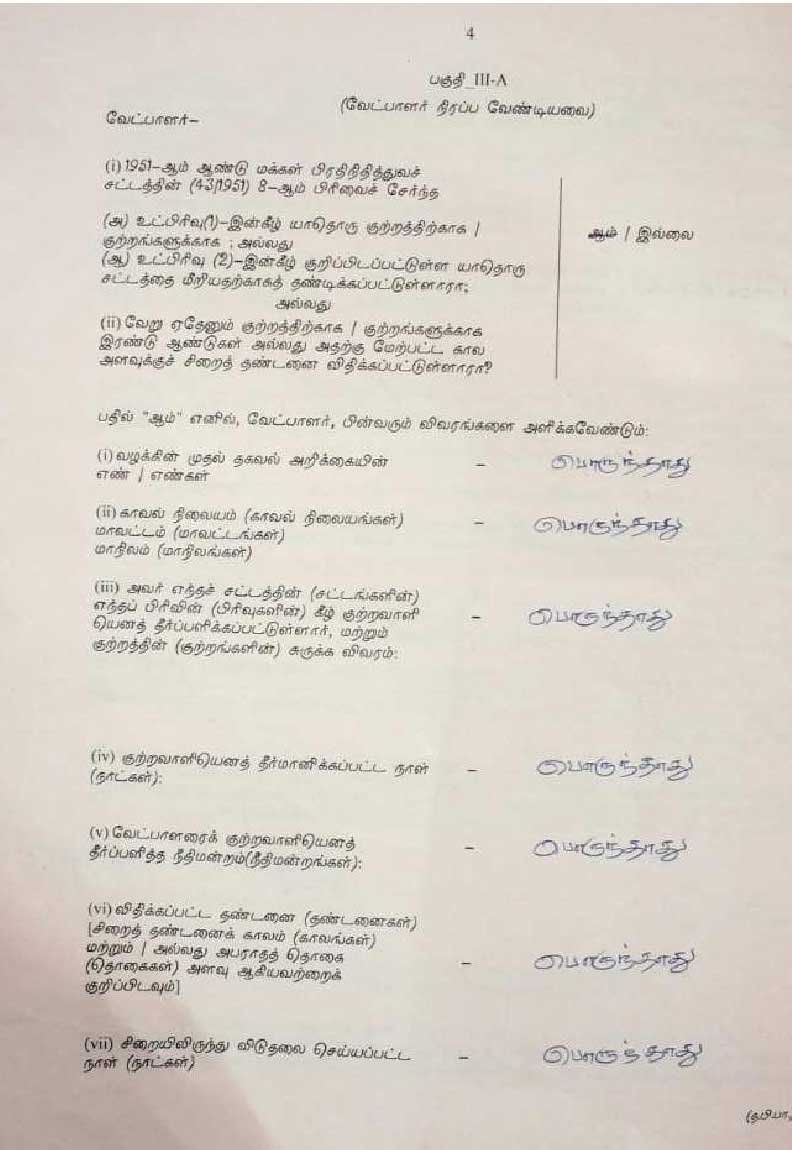 4
பகுதி_III-A
(வேட்பாளர் நிரப்ப வேண்டியவை)
வேட்பாளர்–
(i) 1951–ஆம் ஆண்டு மக்கள் பிரதிநிதித்துவச்
சட்டத்தின் (43/1951) 8–ஆம் பிரிவைச் சேர்ந்த
(அ) உட்பிரிவு(1)–இன்கீழ் யாதொரு குற்றத்திற்காக /
குற்றங்களுக்காக ; அல்லது
ஆம் / இல்லை
(ஆ) உட்பிரிவு (2)–இன்கீழ் குறிப்பிடப்பட்டுள்ள யாதொரு
சட்டத்தை மீறியதற்காகத் தண்டிக்கப்பட்டுள்ளாரா;
அல்லது
(ii) வேறு ஏதேனும் குற்றத்திற்காக / குற்றங்களுக்காக
இரண்டு ஆண்டுகள் அல்லது அதற்கு மேற்பட்ட கால
அளவுக்குச் சிறைத் தண்டனை விதிக்கப்பட்டுள்ளாரா?
பதில் "ஆம்" எனில், வேட்பாளர், பின்வரும் விவரங்களை அளிக்கவேண்டும்:
(i) வழக்கின் முதல் தகவல் அறிக்கையின் – பொருந்தாது
எண் / எண்கள்
(ii) காவல் நிலையம் (காவல் நிலையங்கள்) – பொருந்தாது
மாவட்டம் (மாவட்டங்கள்)
மாநிலம் (மாநிலங்கள்)
(iii) அவர் எந்தச் சட்டத்தின் (சட்டங்களின்)
எந்தப் பிரிவின் (பிரிவுகளின்) கீழ் குற்றவாளி – பொருந்தாது
யெனத் தீர்ப்பளிக்கப்பட்டுள்ளார், மற்றும்
குற்றத்தின் (குற்றங்களின்) சுருக்க விவரம்:
(iv) குற்றவாளியெனத் தீர்மானிக்கப்பட்ட நாள் – பொருந்தாது
(நாட்கள்):
(v) வேட்பாளரைக் குற்றவாளியெனத் – பொருந்தாது
தீர்ப்பளித்த நீதிமன்றம்(நீதிமன்றங்கள்):
(vi) விதிக்கப்பட்ட தண்டனை (தண்டனைகள்)
[சிறைத் தண்டனைக் காலம் (காலங்கள்)
மற்றும் / அல்லது அபராதத் தொகை
(தொகைகள்) அளவு ஆகியவற்றைக் – பொருந்தாது
குறிப்பிடவும்]
(vii) சிறையிலிருந்து விடுதலை செய்யப்பட்ட – பொருந்தாது
நாள் (நாட்கள்)
(தபியா,